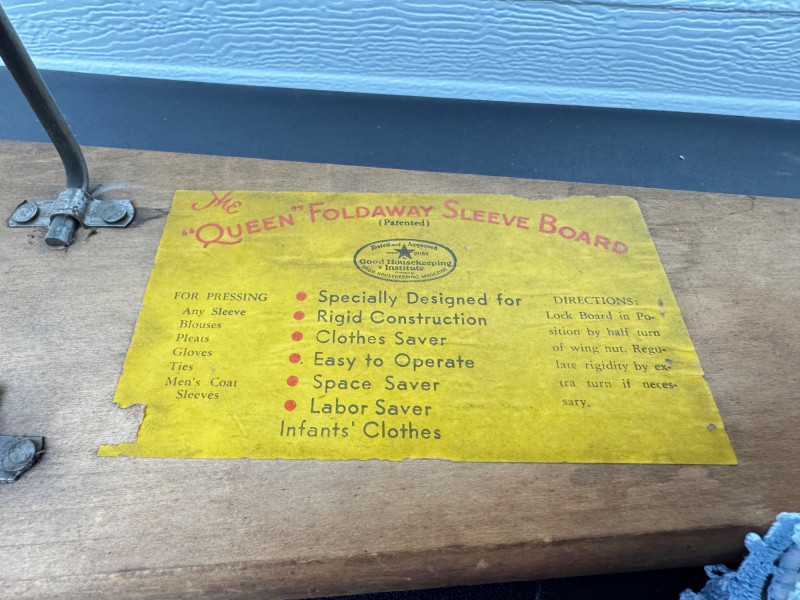 The
"QUEEN" FOLDAWAY SLEEVE BOARD
(Patented)
Tested and Approved
Good Housekeeping
Institute
GOOD HOUSEKEEPING MAGAZINE
FOR PRESSING
Any Sleeve
Blouses
Pleats
Gloves
Ties
Men's Coat
Sleeves
Specially Designed for
Rigid Construction
Clothes Saver
Easy to Operate
Space Saver
Labor Saver
Infants' Clothes
DIRECTIONS:
Lock Board in Po-
sition by half turn
of wing nut. Regu-
late rigidity by ex-
tra turn if neces-
sary.